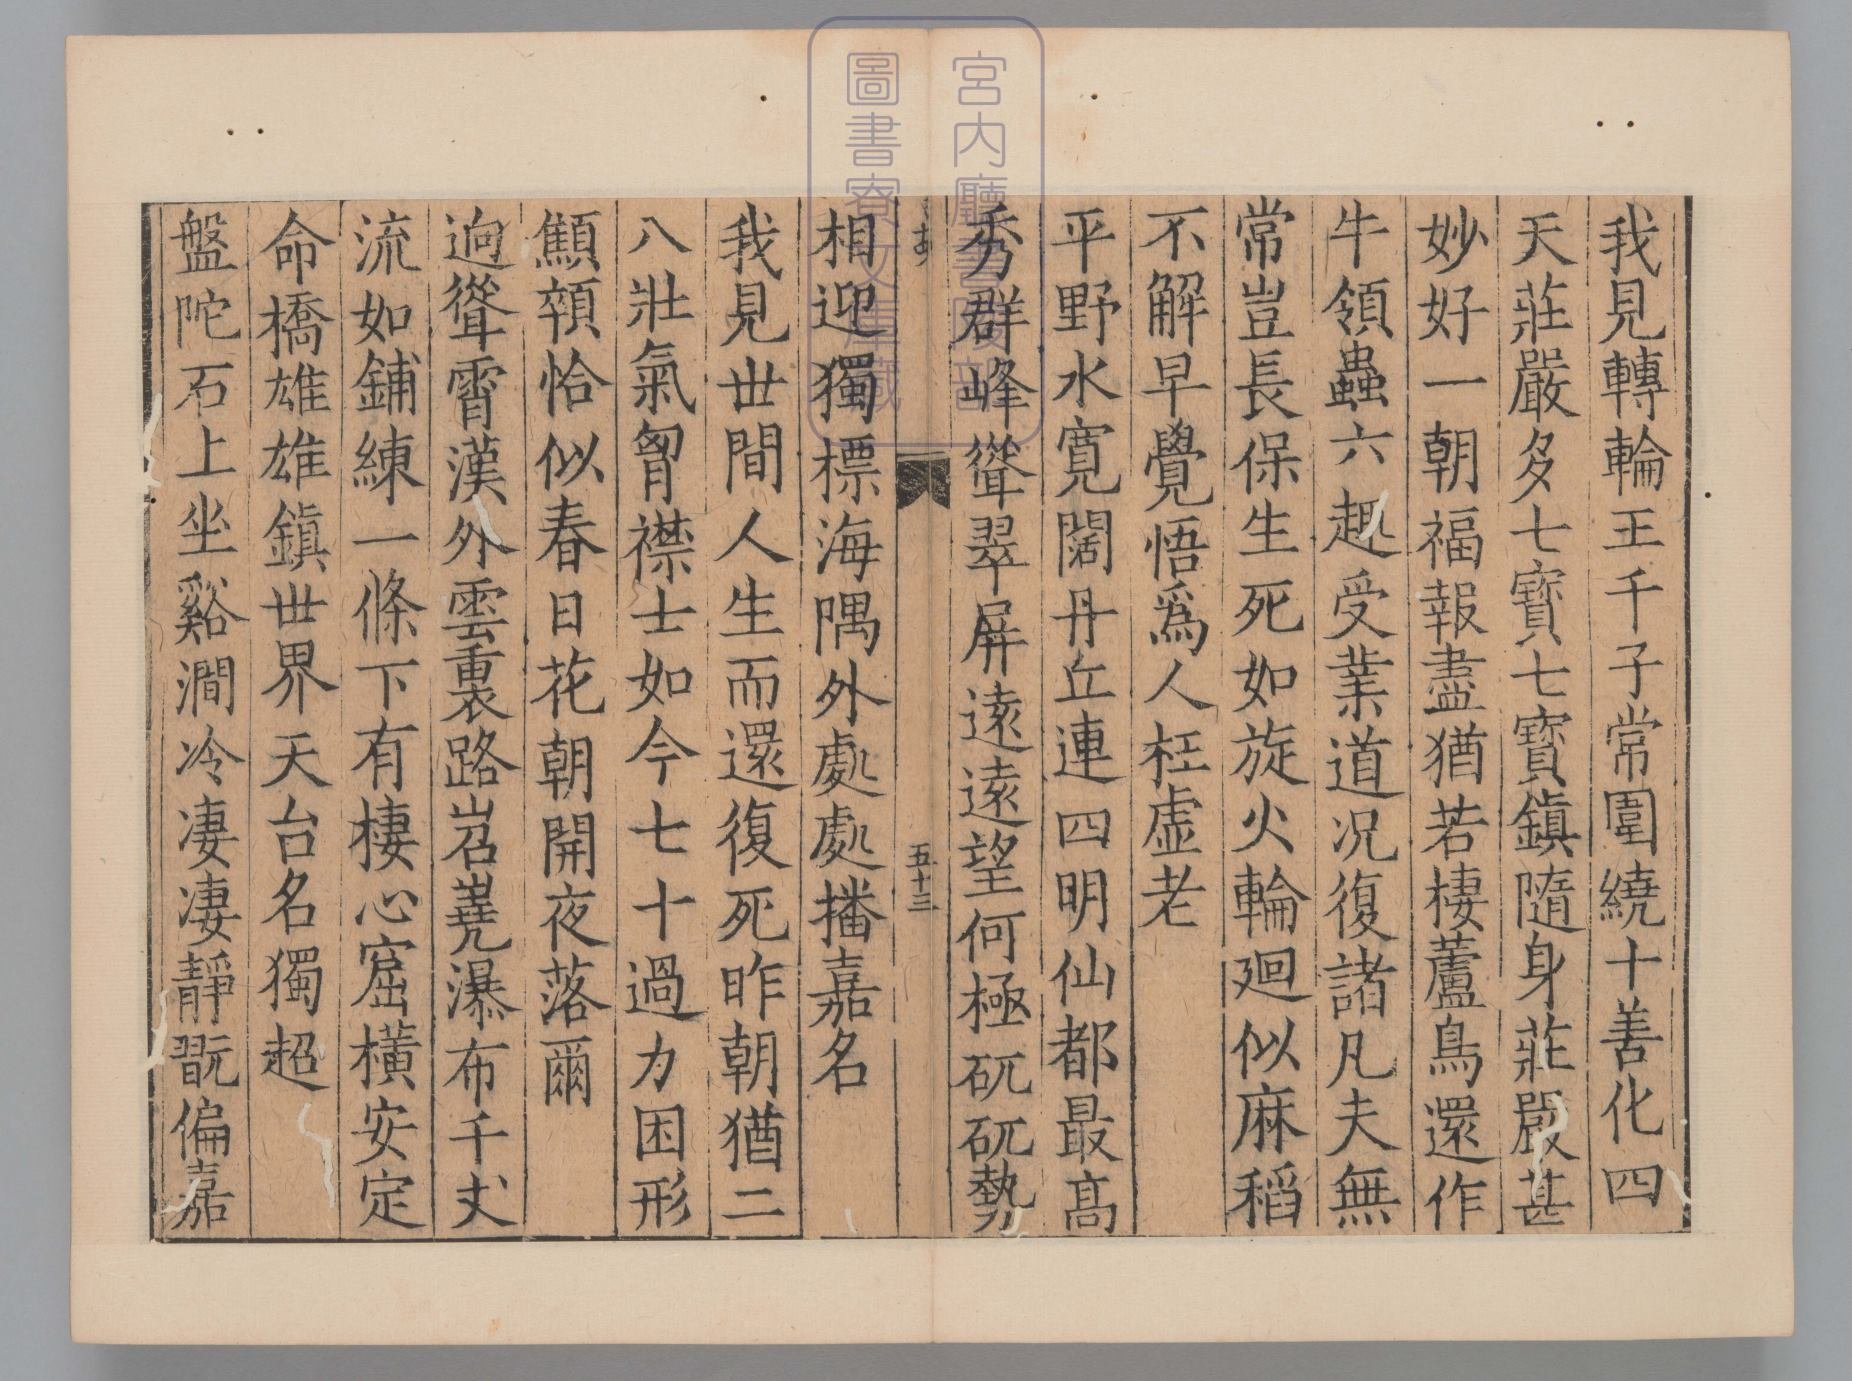 我見轉輪王千子常圍繞十善化四
天莊嚴多七寳七寳鎮隨身莊嚴甚
妙好一朝福報盡猶若棲蘆鳥還作
牛領蟲六趣受業道况復諸凡夫無
常豈長保生死如旋火輪廻似麻稻
不解早覺悟爲人枉虛老
平野水寛闊丹丘連四明仙都最髙
秀群峰聳翠屏遠遠望何極矹矹勢
五十三
相迎獨標海隅外處處播嘉名
我見世間人生而還復死昨朝猶二
八壯氣胷襟士如今七十過力困形
顦顇恰似春日花朝開夜落爾
逈聳霄漢外雲裏路岧嶤瀑布千丈
流如鋪練一條下有棲心窟橫安定
命橋雄雄鎮世界天台名獨超
盤陀石上坐谿澗冷凄凄靜翫偏嘉
宮内廳書陵部
圖書寮文庫藏